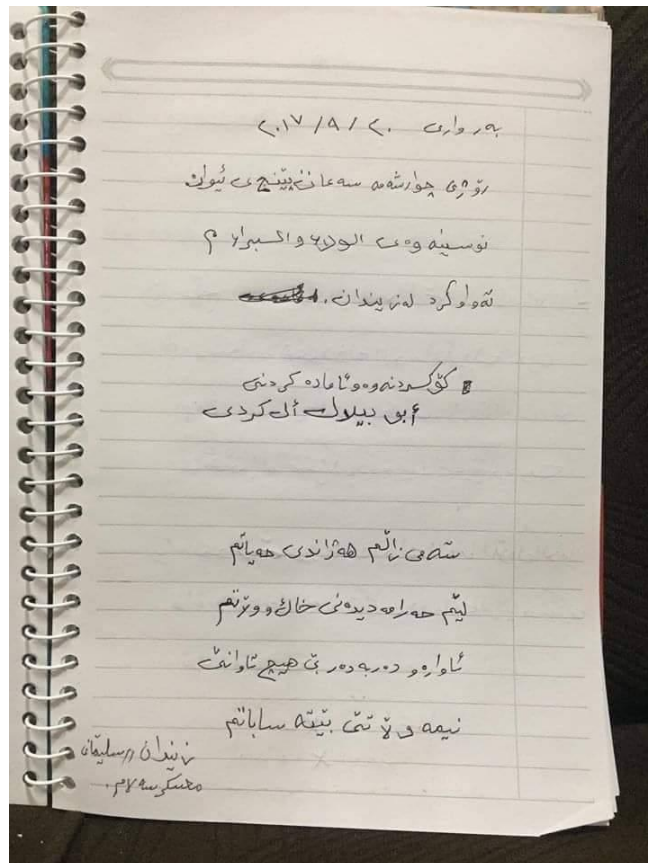 بەرواری ٢٠ / ٩ / ٢٠١٧
رۆژی چوارشەمە سەعات پێنجی ئێوارە
نوسینەوەی الولاء والبراء م
تەواو کرد لەزیندان.
کۆکردنەوەو ئامادە کردنی
أبو بیلال أل کردی
ستەمی زاڵم هەژاندی حەیاتم
لێم حەرامە دیدەنی خاك و وڵاتم
ئاوارەو دەربەدەر بێ هیچ تاوانێ
نیمە وڵاتێ بێتە ساباتم
زیندان سلێمانی
معسکر سەلام.